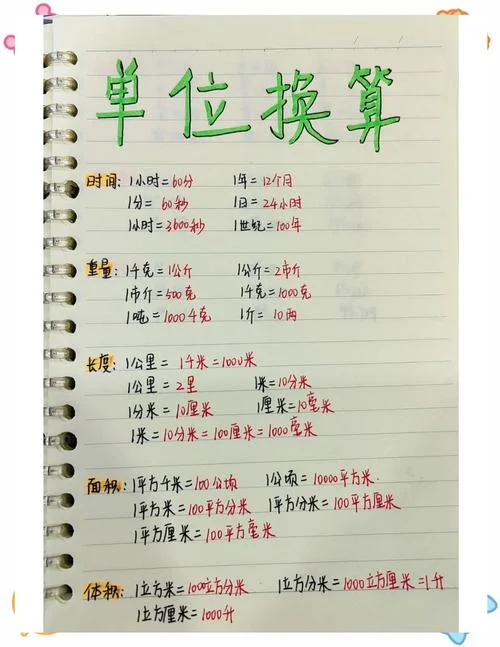 单位换算
时间: 1小时=60分 1年=12个月
1分=60秒 1日=24小时
1小时=3600秒 1世纪=100年
重量: 1千克=1公斤 1公斤=2市斤
1市斤=500克 1千克=1000克
1吨=1000千克 1斤=10两
长度: 1公里=1千米=1000米
1公里=2里 1米=10分米
1分米=10厘米 1厘米=10毫米
1米=10分米=100厘米=1000毫米
面积: 1平方千米=100公顷 1公顷=10000平方米.
1平方米=100平方分米 1平方分米=100平方厘米
1平方厘米=100平方毫米
体积: 1立方米=1000立方分米 1立方分米=1000立方厘米=1升
1立方厘米=1000升